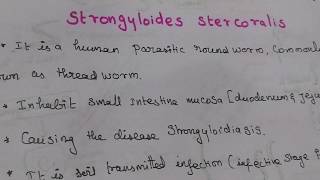 Strongyloides stercoralis
* It is a human parasitic round worm, commonl
own as thread worm.
* Inhabit small intestine mucosa [duodenum & jeju
* Causing the disease strongyloidiasis.
* It is soil transmitted infection (infective stage